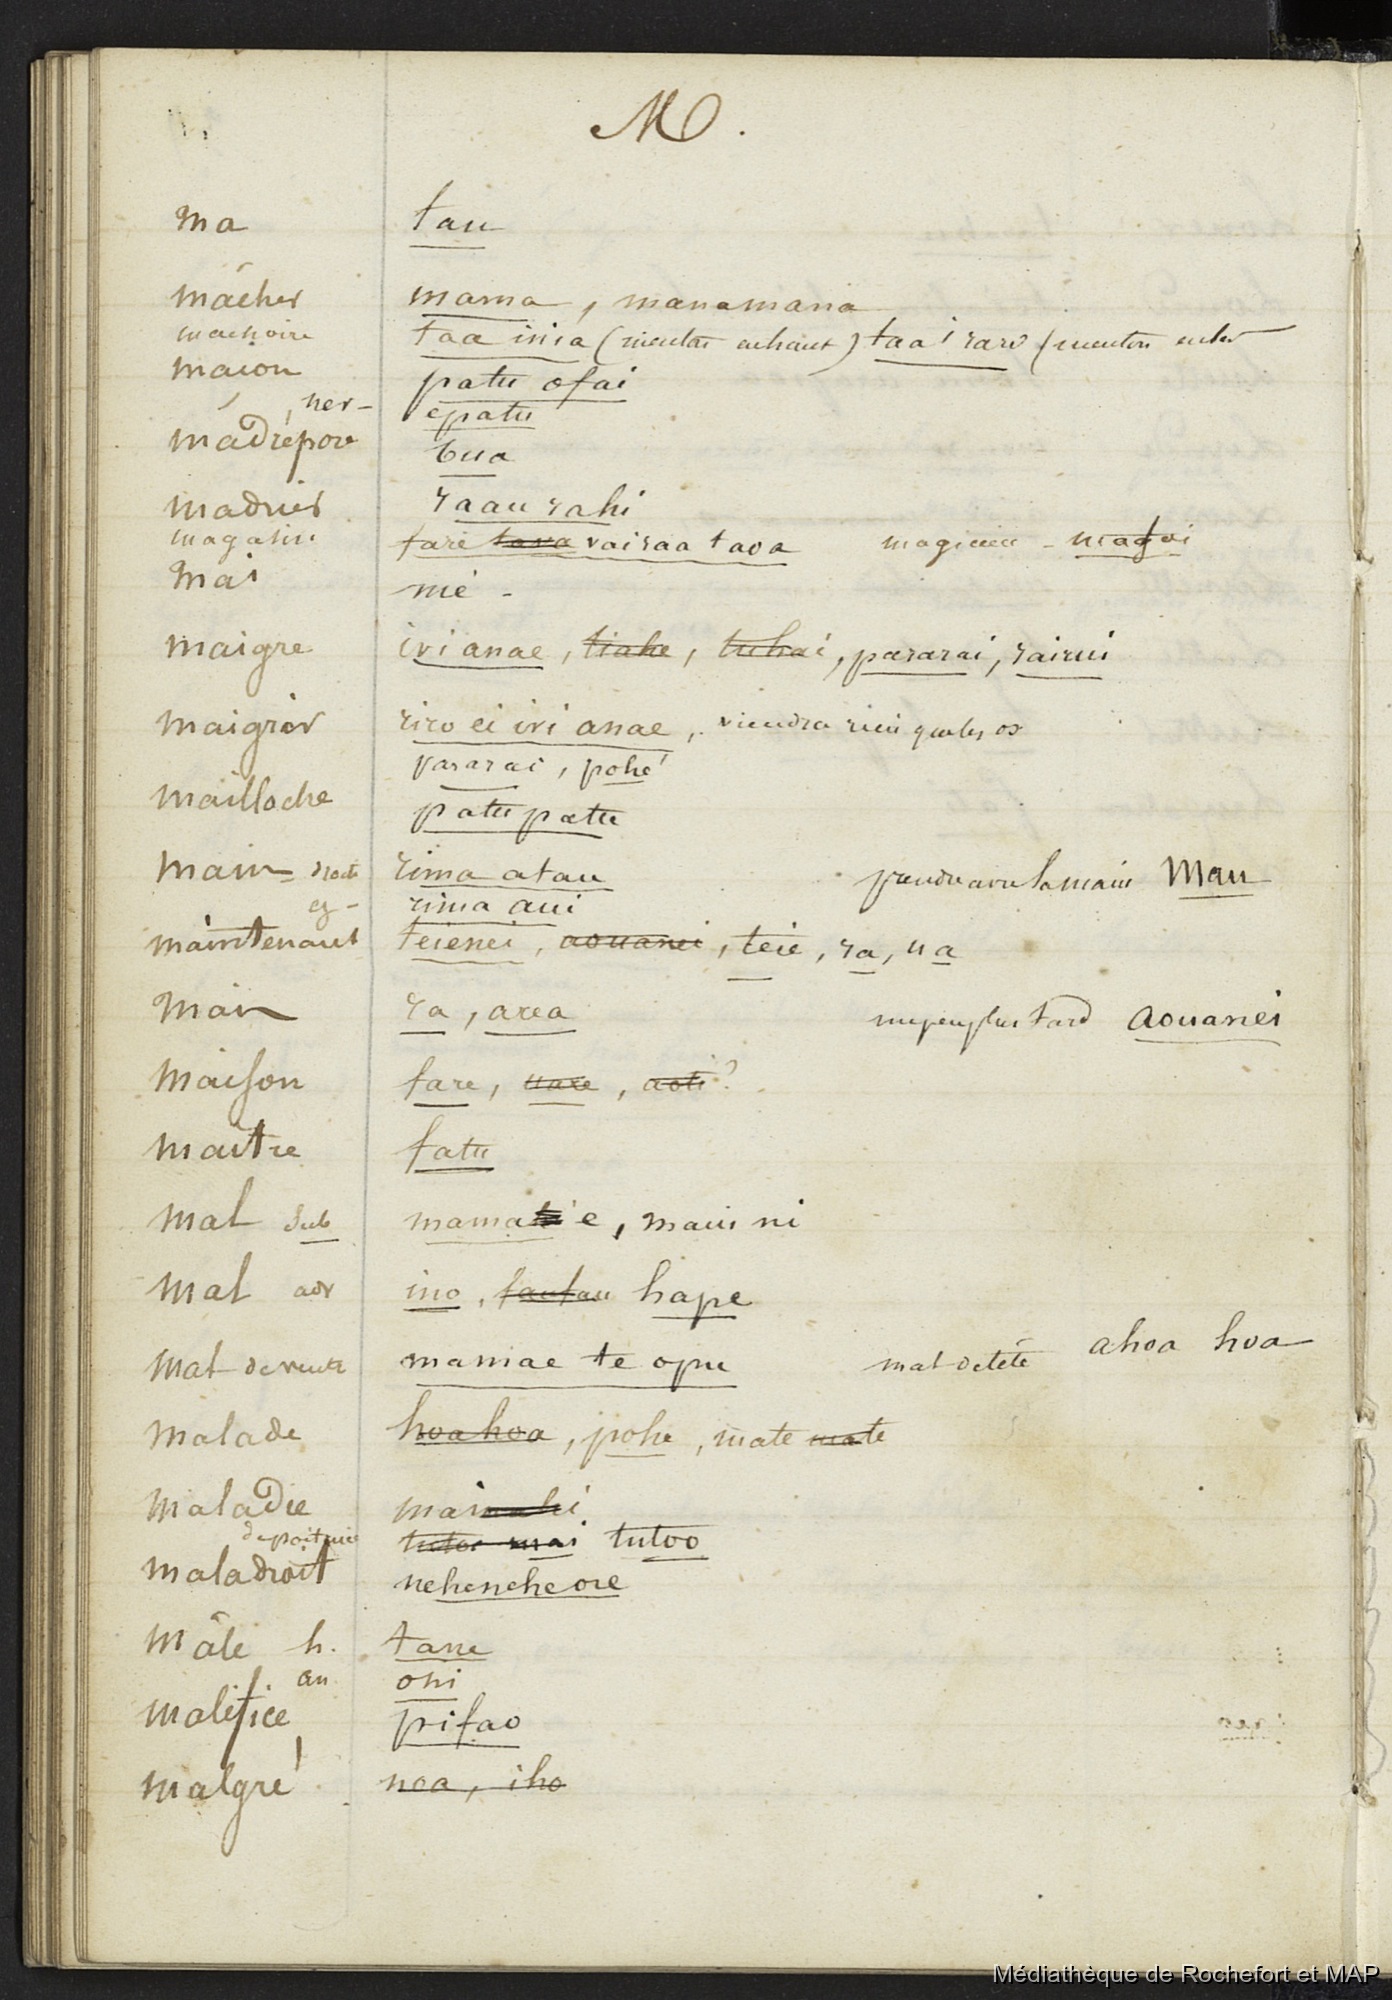 M.
ma tau
mâcher mama, manamana
machoire taa inia (menton en haut) taa i raro (menton en bas
maçon patu ofai
, ner- epatu
madrépore bua
madrier raau rahi
magasin fare tava vairaa taoa magicien - matoi
mai me -
maigre ivi anae, tiahe, tuhai, pararai, rairui
maigrir riro ei ivi anae, viendra rien que les os
pararai, pohé
mailloche patu patu
main droite rima atau prendre avec la main Mau
g- rima aui
maintenant teienei, aouanei, teie, ra, ua
mais ra, area un peu plus tard aouanei
maison fare, uare, aoti?
maitre fatu
mal sub mamae, mauini
mal adv ino, tautau hape
mal de ventre mamae te opu mal de tête ahoa hoa
malade hoahoa, pohe, mate mate
maladie mai
de poitrine tutoo mai tutoo
maladroit neheneheore
mâle h. tane
an oni
maléfice pifao
malgré noa, iho
Médiathèque de Rochefort et MAP